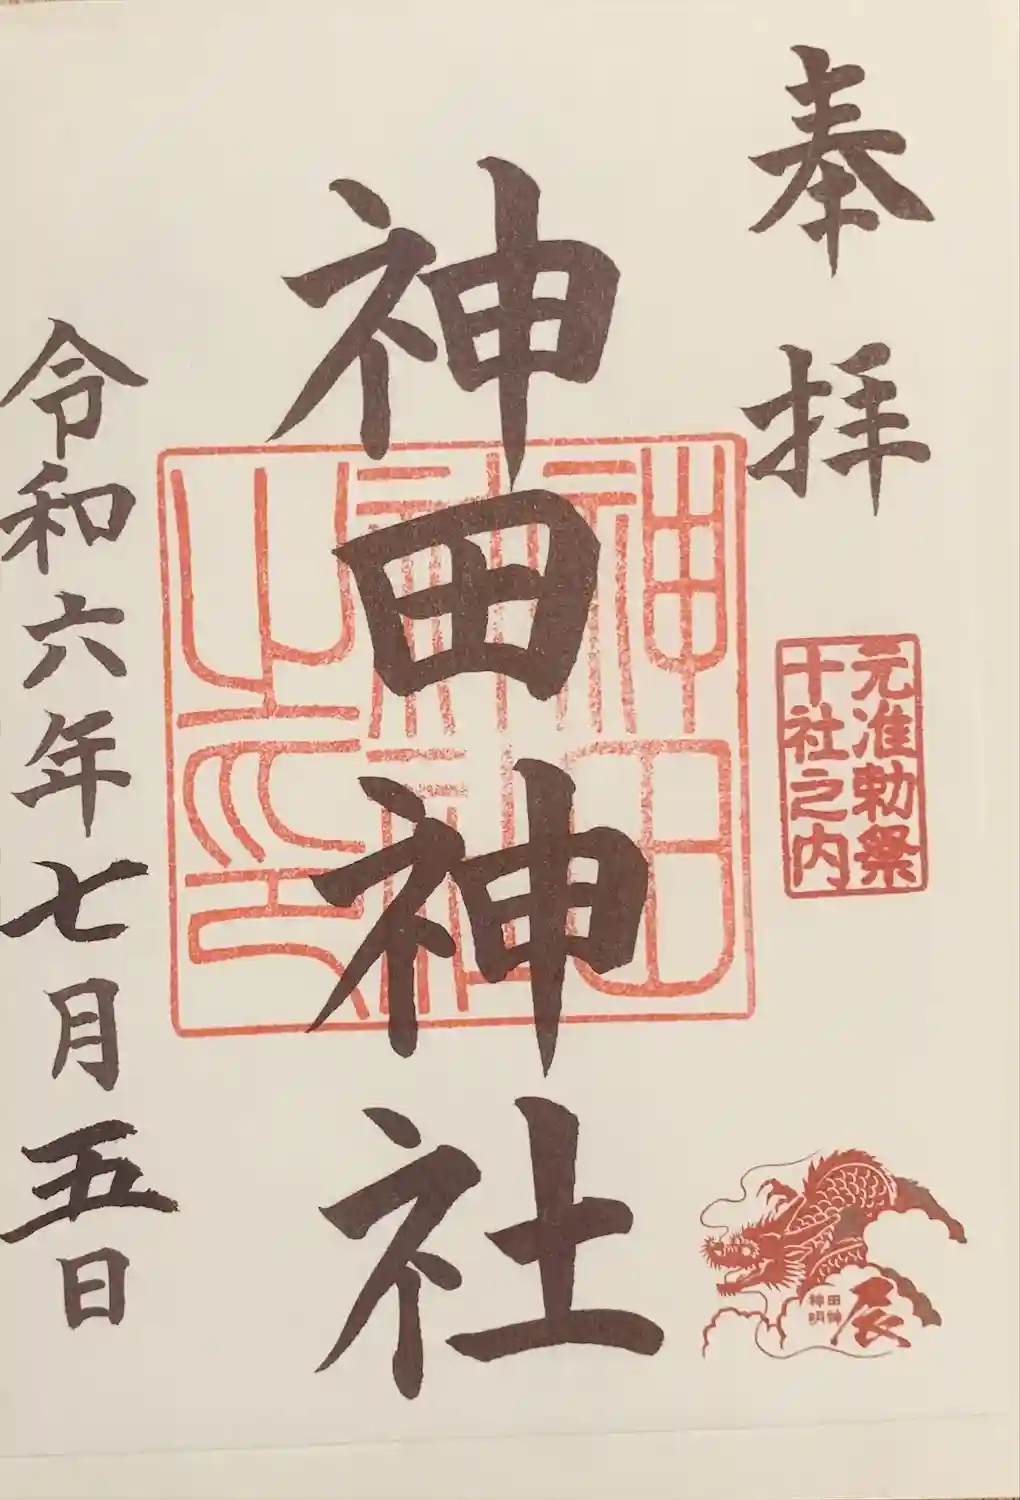 奉拝
元准勅祭
十社之内
神田神社
神田神社之印
令和六年七月五日
神田
明神
辰